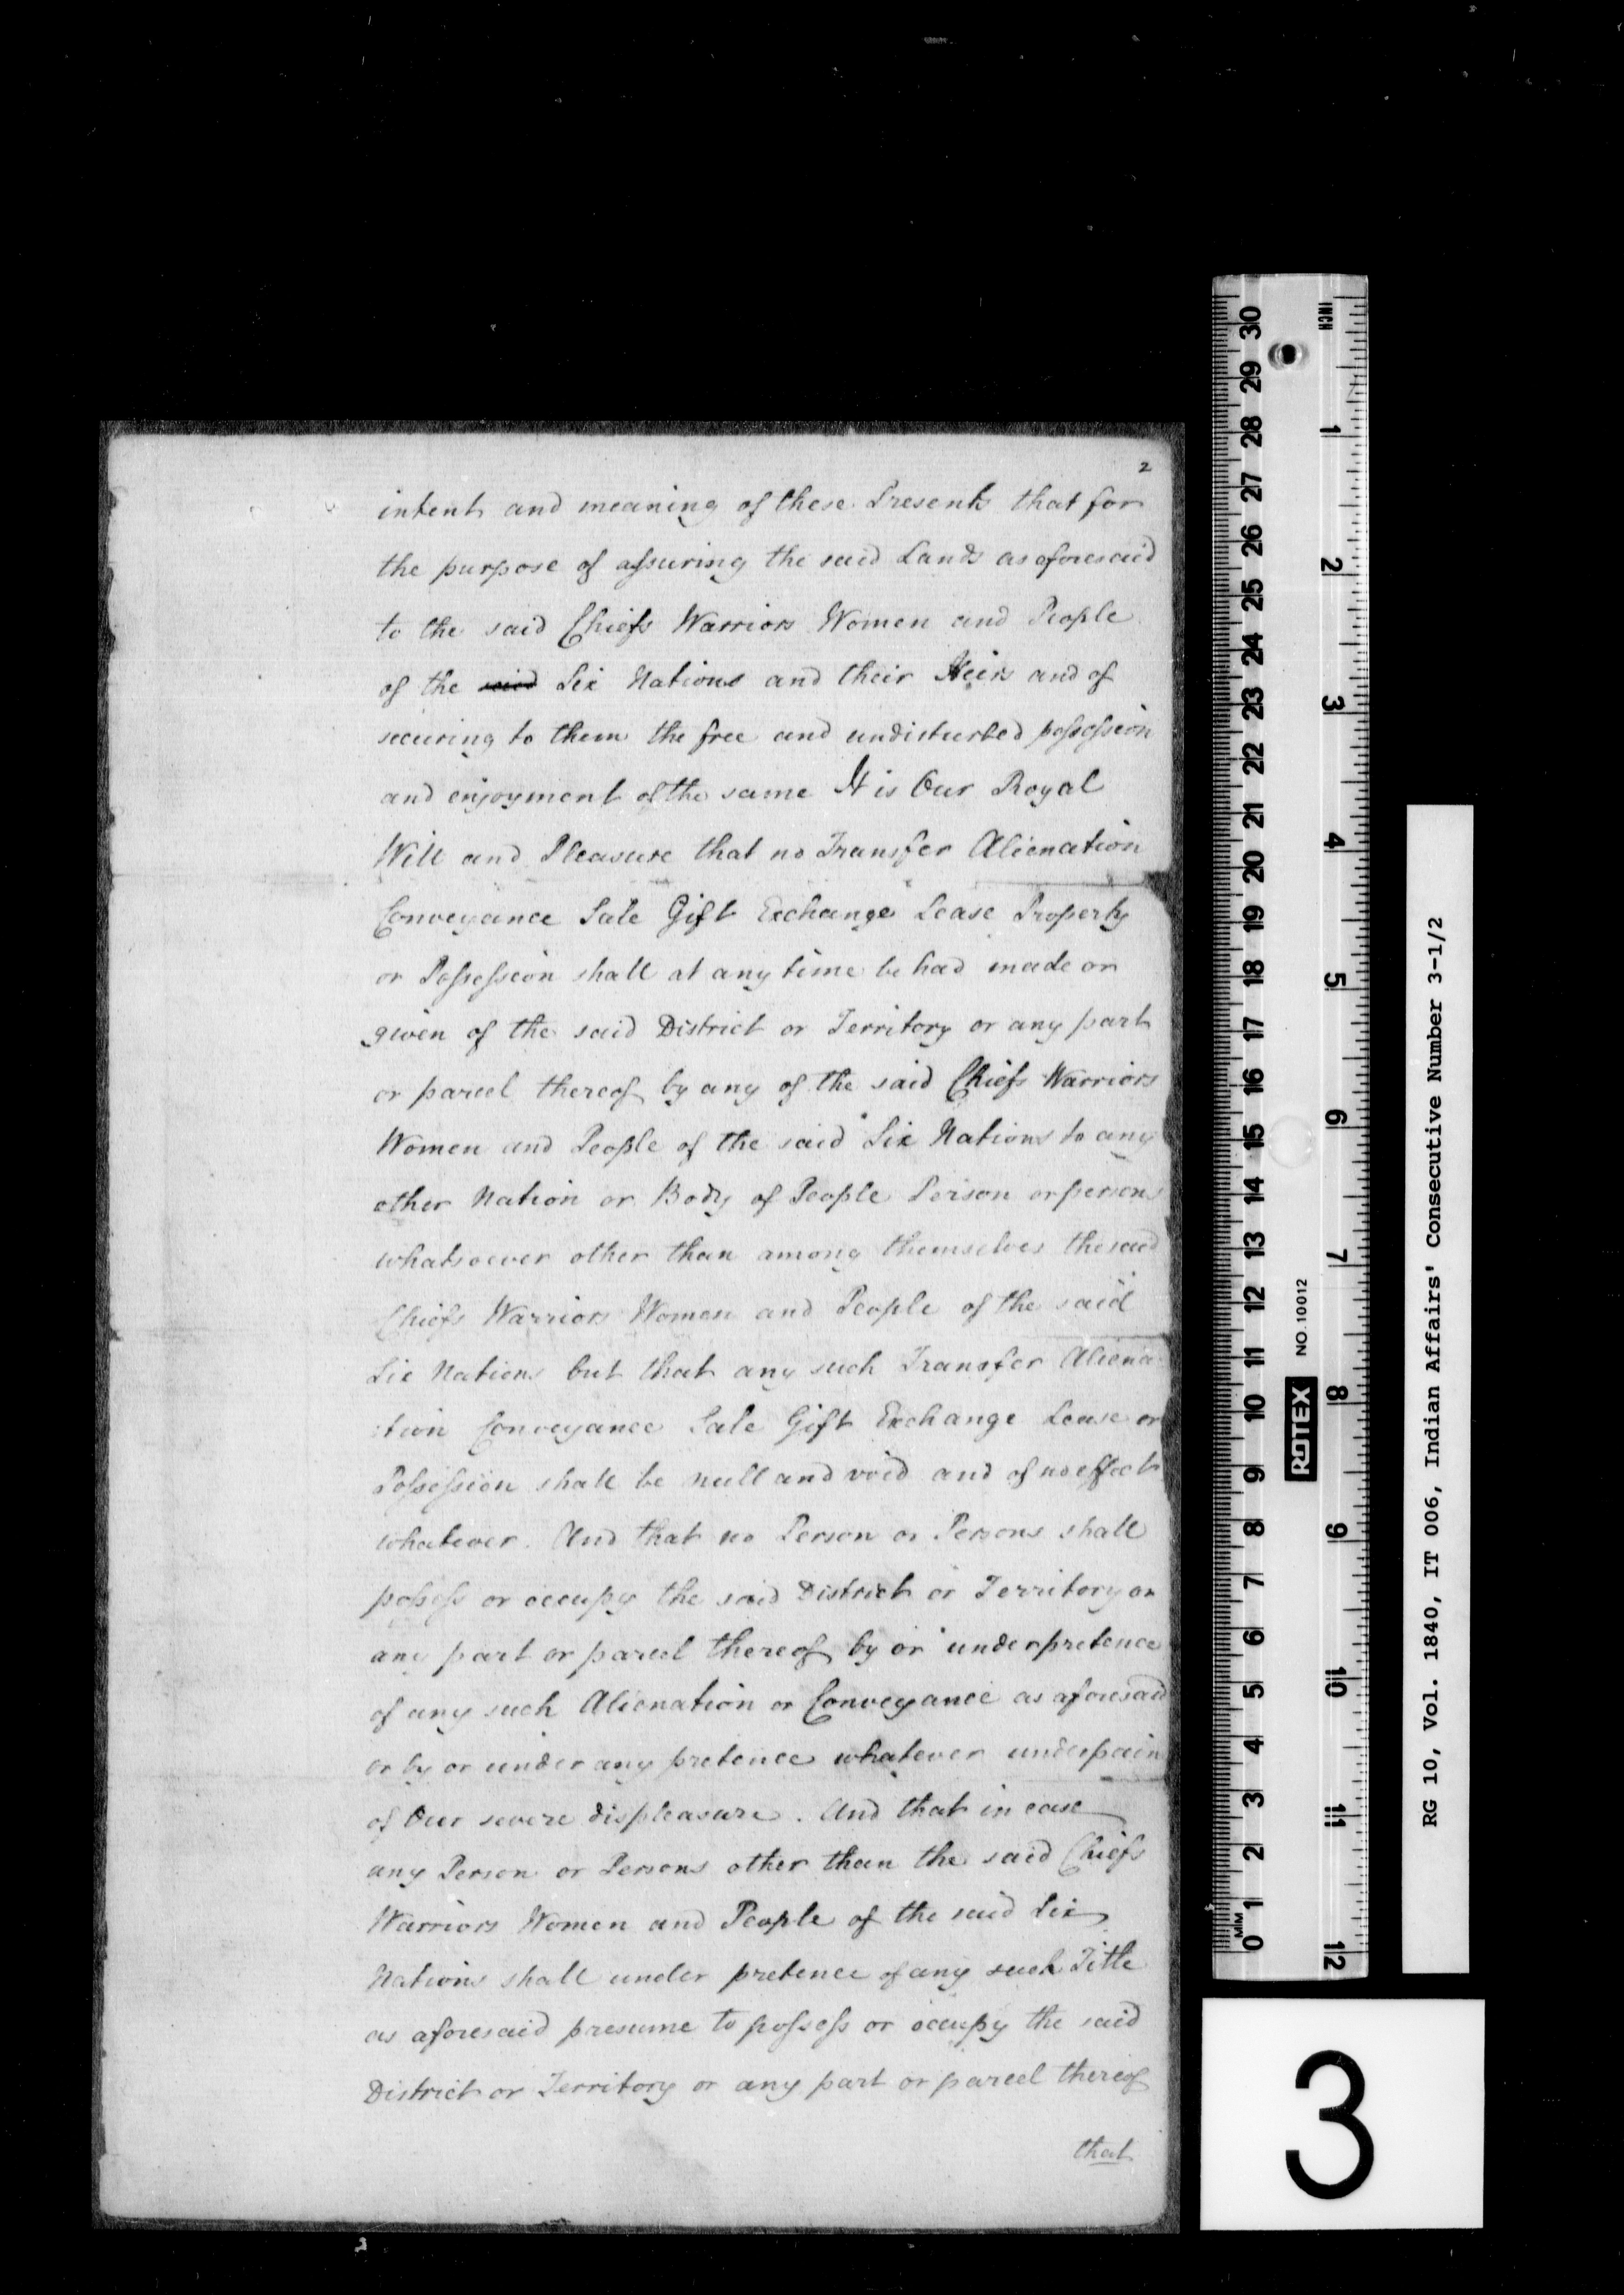 2
intent and meaning of these Presents that for
the purpose of assuring the said Lands as aforesaid
to the said Chiefs Warriors Women and People
of the said Six Nations and their Heirs and of
securing to them the free and undisturbed possession
and enjoyment of the same It is Our Royal
Will and Pleasure that no Transfer Alienation
Conveyance Sale Gift Exchange Lease Property
or Possession shall at any time be had made or
given of the said District or Territory or any part
or parcel thereof by any of the said Chiefs Warriors
Women and People of the said Six Nations to any
other Nation or Body of People Person or persons
whatsoever other than among themselves the said
Chiefs Warriors Women and People of the said
Six Nations but that any such Transfer Aliena
:tion Conveyance Sale Gift Exchange Lease or
Possession shall be null and void and of no effect
whatever. And that no Person or Persons shall
possess or occupy the said District or Territory or
any part or parcel thereof by or under pretence
of any such Alienation or Conveyance as aforesaid
or by or under any pretence whatever under pain
of Our severe displeasure. And that in case
any Person or Persons other than the said Chiefs
Warriors Women and People of the said Six
Nations shall under pretence of any such Title
as aforesaid presume to possess or occupy the said
District or Territory or any part or parcel thereof
that
INCH
30 29 28 27 26 25 24 23 22 21 20 19 18 17 16 15 14 13 12 11 10 9 8 7 6 5 4 3 2 1 0
MM
1 2 3 4 5 6 7 8 9 10 11 12
ROTEX NO. 10012
RG 10, Vol. 1840, IT 006, Indian Affairs' Consecutive Number 3-1/2
3